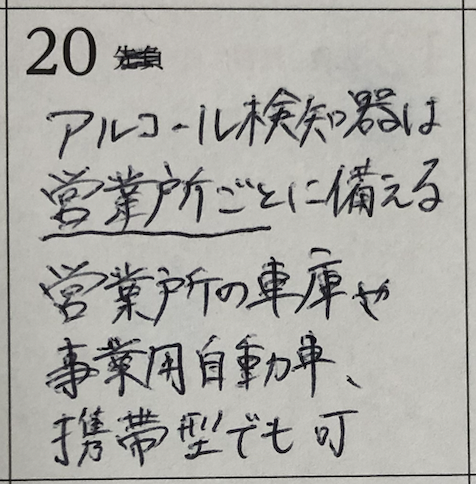 20 先負
アルコール検知器は
営業所ごとに備える
営業所の車庫や
事業用自動車、
携帯型でも可